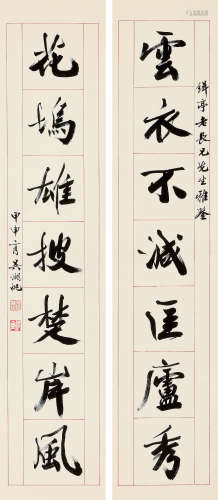 雲衣不減匡廬秀
緝亭老長兄先生雅鑒
花塢雄搜楚岸風
甲申二月吳湖帆